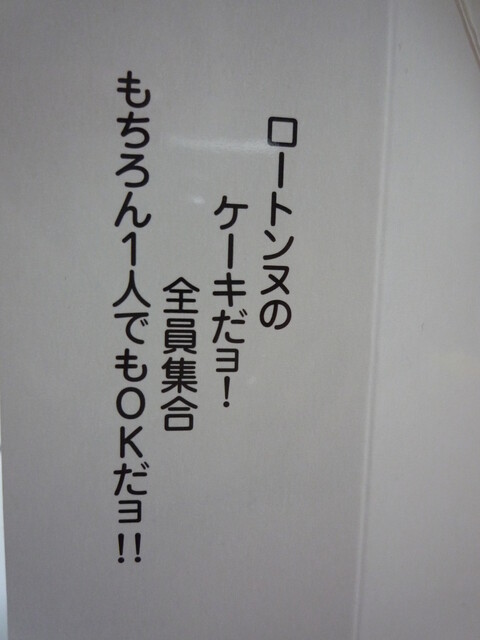 ロートンヌの
ケーキだョ!
全員集合
もちろん1人でもOKだョ!!